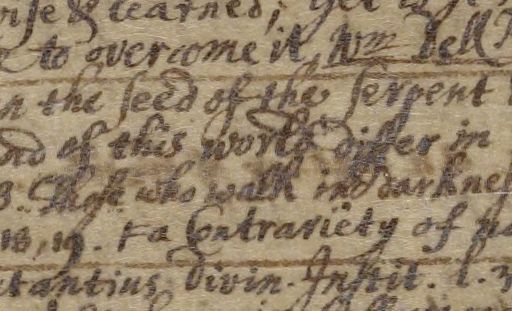 wise & learned, yet
to overcome it, Wm Dell
in the seed of the serpent
of this world differ in
3. Thost who walk in darknes
18, 19. ta Contrariety of
tantius Divin. Instit. l.